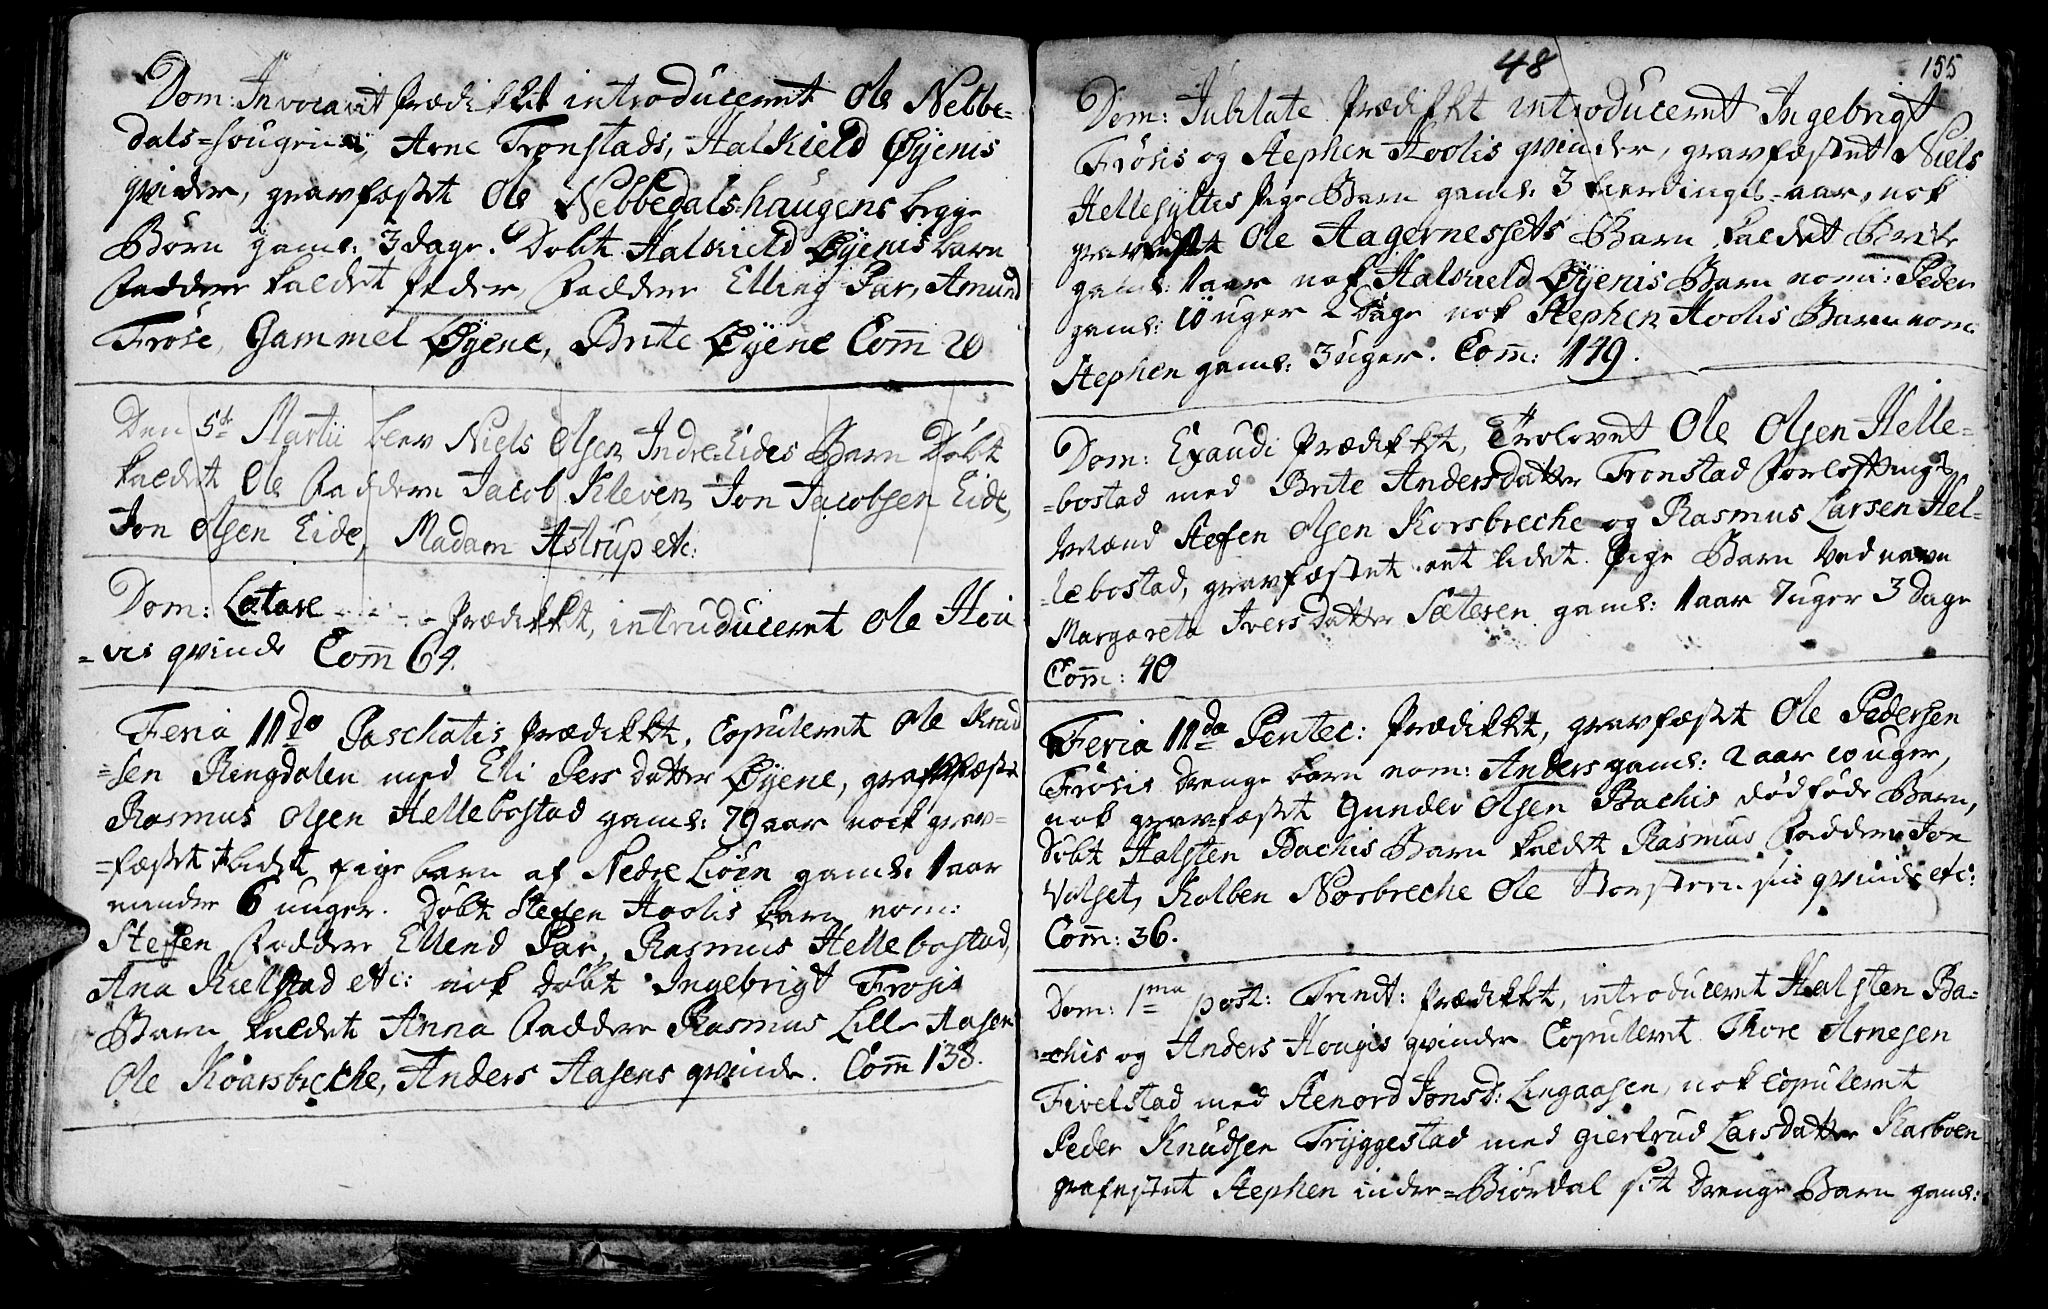 Dom: Invocavit Prædikkt introduceret Ole Nebbe-
dals=hougens, Arne Tronstads, Halkield Øÿenis
qvinder, gravfæstet Ole Nebbedals=haugens begge
Børn gaml: 3 dage. Døbt Halkield Øÿenis barn
Faddere kaldet Peder, Faddere Elling Par, Amund
Frøse, Gammel Øÿene, Brite Øÿene Com̅ 20
Den 5te Martii blev Niels Olsen Indre=Eides Barn Døbt
kaldet Ole Faddere Jacob Kleven, Jon Jacobsen Eide,
Jon Olsen Eide, Madam Astrup etc:
Dom: Lætare - - - - Prædikkt, intruduceret Ole Høi
=vis qvinde Com̅ 64.
Feria IIda Paschatis Prædikkt, Copuleret Ole Knud
=sen Ringdalen med Eli Pers datter Øÿene, gravfæstet
Rasmus Olsen Hellebostad gaml: 79 aar nock grav=
=fæstet et lidet pige barn af Nedre Liøen gaml: 1 aar
mindre 6 uuger. Døbt Steffen Hoolis barn nom:
Steffen Faddere Ellend Par, Rasmus Hellebostad,
Ana Kielstad etc: nok døbt Ingebrigt Frøsis
Barn kaldet Anna Faddere Rasmus Lille Aasen
Ole Koarsbreche, Anders Aasens qvinde. Com̅ 138.
48
155
Dom: Jubilate Prædikkt introduceret Ingebrigt
Frøsis og Stephen Hoolis qvinder, gravfæstet Niels
Hellesyltes Pige Barn gaml: 3 fierdingel=aar, nok
gravfæstet Ole Aagernessets Barn kaldet Brite
gaml: 1 aar nok Halkield Øÿenis Barn nomi: Peder
gaml: 10 uger 2 Dage nok Stephen Hoolis Barn nom:
Stephen gaml: 3 uger. Com̅: 149.
Dom: Exaudi Prædikkt, Trolovet Ole Olsen Helle=
=bostad med Brite Andersdatter Tronstad Forloftnings
Mænd Steffen Olsen Korsbreche og Rasmus Larsen Hel=
=lebostad, gravfæstet eet lidet Pige Barn ved navn
Margareta Ivers Datter Sæteren gaml: 1 aar 7 uger 3 Dage
Com̅: 40
Feria IIda Pentec: Prædikkt, gravfæstet Ole Pedersen
Frøsis drenge barn nom: Anders gaml: 2 aar 10 uger,
nok gravfæstet Gunder Olsen Bachis dødføde Barn,
Døbt Halsten Bachis Barn kaldet Rasmus Faddere Jon
Volset, Kolben Norbreche Ole Storsteen sin qvinde etc:
Com̅: 36.
Dom: 1ma post: Trinit: Prædikkt, introduceret Halsten Ba=
=chis og Anders Hougis qvinder Copuleret Thore Arnesen
Fivelstad med Stenord Jonsd: Lingaasen, nok copuleret
Peder Knudsen Trÿggestad med giertrud Larsdatter Karboen
grafestet Stephen indre=Biørdal sit Drenge Barn gaml: